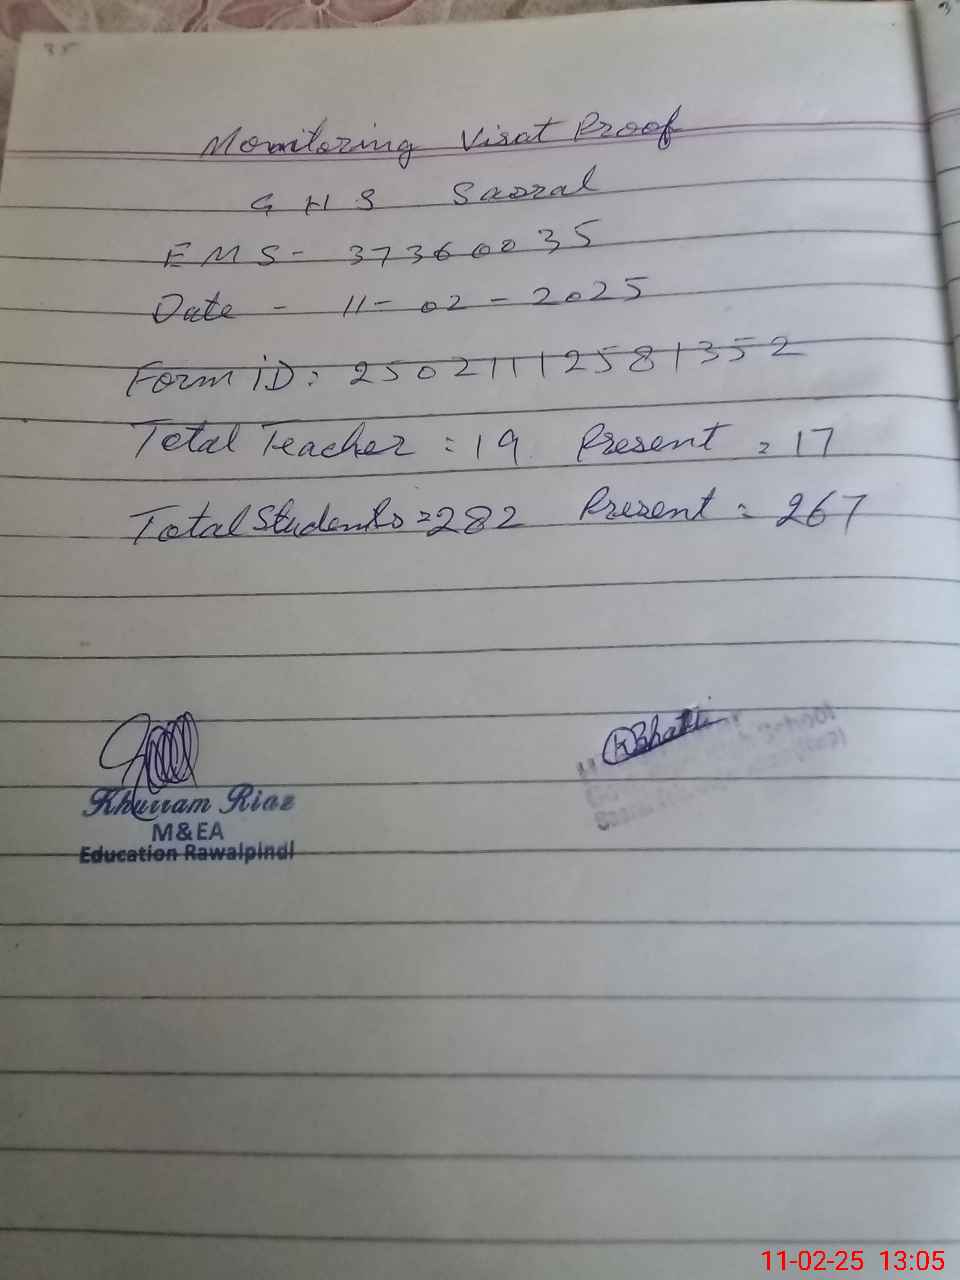 35
Monitoring Visat Proof
G H S Saoral
EMS- 37360035
Date - 11-02-2025
Form iD: 25021112581352
Total Teacher : 19 Present = 17
Total Students = 282 Present = 267
KBhatti
Khurram Riaz
M&EA
Education Rawalpindi
11-02-25 13:05